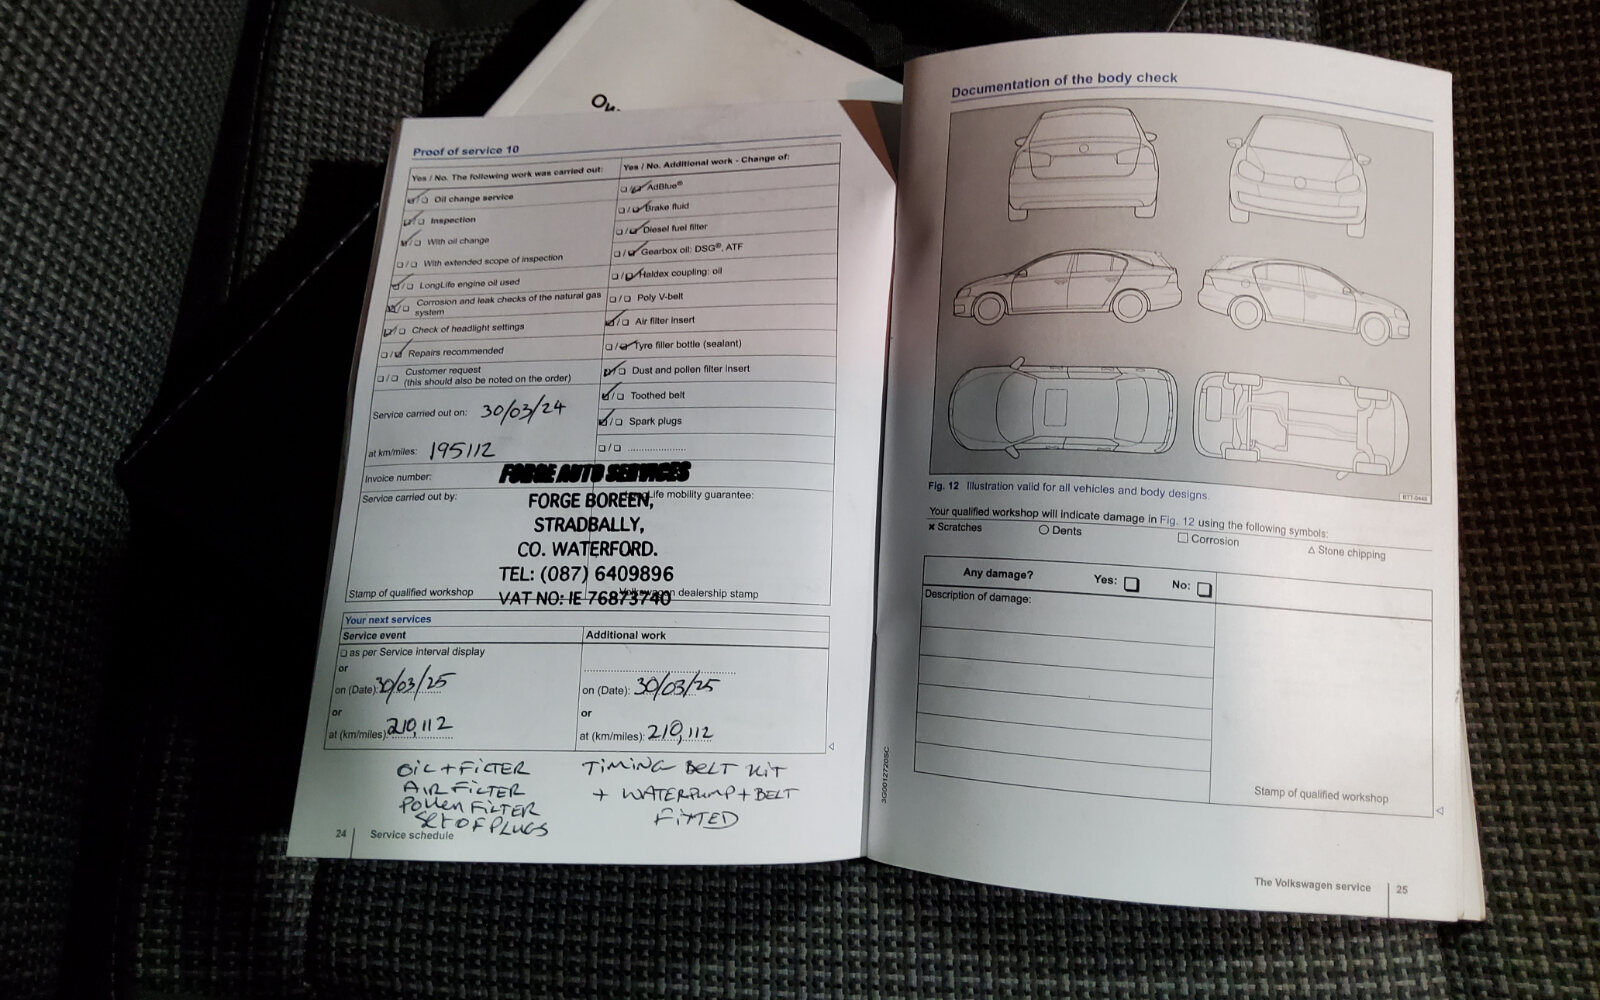 Proof of service 10
Yes / No. The following work was carried out:
☑/☐ Oil change service
☑/☐ Inspection
☑/☐ With oil change
☐/☐ With extended scope of inspection
☑/☐ LongLife engine oil used
☑/☐ Corrosion and leak checks of the natural gas
system
☑/☐ Check of headlight settings
☐/☑ Repairs recommended
☐/☐ Customer request
(this should also be noted on the order)
Service carried out on: 30/03/24
at km/miles: 195112
Yes / No. Additional work - Change of:
☐/☑ AdBlue®
☐/☑ Brake fluid
☐/☑ Diesel fuel filter
☐/☑ Gearbox oil: DSG®, ATF
☐/☑ Haldex coupling: oil
☐/☐ Poly V-belt
☑/☐ Air filter insert
☐/☑ Tyre filler bottle (sealant)
☑/☐ Dust and pollen filter insert
☑/☐ Toothed belt
☑/☐ Spark plugs
☐/☐ ....................
Invoice number:
Service carried out by:
FORGE AUTO SERVICES
FORGE BOREEN,
STRADBALLY,
CO. WATERFORD.
TEL: (087) 6409896
VAT NO: IE 76873740
Life mobility guarantee:
Stamp of qualified workshop
Volkswagen dealership stamp
Your next services
Service event
☐ as per Service interval display
or
on (Date): 30/03/25
or
at (km/miles): 210,112
Additional work
on (Date): 30/03/25
or
at (km/miles): 210,112
OIL + FILTER
AIR FILTER
POLLEN FILTER
SET OF PLUGS
TIMING BELT KIT
+ WATERPUMP + BELT
FITTED
24 | Service schedule
Ou
Documentation of the body check
Fig. 12 Illustration valid for all vehicles and body designs.
Your qualified workshop will indicate damage in Fig. 12 using the following symbols:
× Scratches ○ Dents □ Corrosion △ Stone chipping
Any damage? Yes: ☐ No: ☐
Description of damage:
Stamp of qualified workshop
3G0012720SC
The Volkswagen service | 25